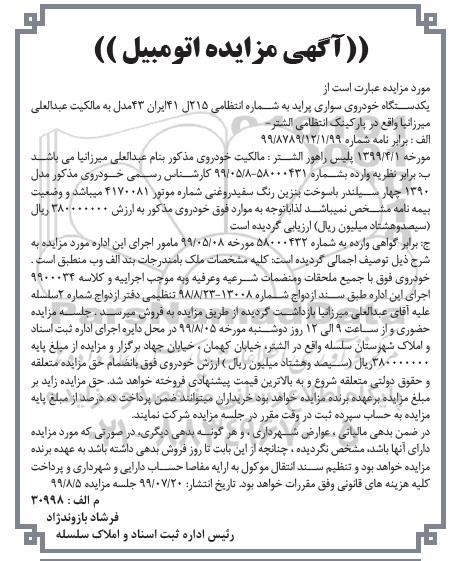 ((آگهی مزایده اتومبیل))
مورد مزایده عبارت است از
یکدستگاه خودروی سواری پراید به شماره انتظامی ۲۱۵ل ۴۱ایران ۴۳مدل به مالکیت عبدالعلی
میرزانیا واقع در پارکینک انتظامی الشتر-
الف : برابر نامه شماره ۹۹/۸۷۸۹/۱۲/۱/۹۹
مورخه ۱۳۹۹/۴/۱ پلیس راهور الشتر : مالکیت خودروی مذکور بنام عبدالعلی میرزانیا می باشد
ب: برابر نظریه وارده بشماره ۵۸۰۰۰۴۳۱-۹۹/۰۵/۸ کارشناس رسمی خودروی مذکور مدل
۱۳۹۰ چهار سیلندر باسوخت بنزین رنگ سفیدروغنی شماره موتور ۴۱۷۰۰۸۱ میباشد و وضعیت
بیمه نامه مشخص نمیباشد لذاباتوجه به موارد فوق خودروی مذکور به ارزش ۳۸۰۰۰۰۰۰۰ ریال
(سیصدوهشتاد میلیون ریال) ارزیابی گردیده است
ج: برابر گواهی وارده به شماره ۵۸۰۰۰۴۳۲ مورخه ۹۹/۰۵/۰۸ مامور اجرای این اداره مورد مزایده به
شرح ذیل توصیف اجمالی گردیده است: کلیه مشخصات ملک بامندرجات بند الف وب منطبق است .
خودروی فوق با جمیع ملحقات ومنضمات شرعیه وعرفیه وبه موجب اجراییه و کلاسه ۹۹۰۰۰۳۴
اجرای این اداره طبق سند ازدواج شماره ۱۳۰۰۸-۹۸/۸/۲۳ تنظیمی دفتر ازدواج شماره ۲سلسله
علیه آقای عبدالعلی میرزانیا بازداشت گردیده از طریق مزایده به فروش میرسد . جلسه مزایده
حضوری و از ساعت ۹ الی ۱۲ روز دوشنبه مورخه ۹۹/۸/۰۵ در محل دایره اجرای اداره ثبت اسناد
و املاک شهرستان سلسله واقع در الشتر، خیابان کهمان ، خیابان جهاد برگزار و مزایده از مبلغ پایه
۳۸۰۰۰۰۰۰۰ریال (سیصد وهشتاد میلیون ریال ) ارزش خودروی فوق بانضمام حق مزایده متعلقه
و حقوق دولتی متعلقه شروع و به بالاترین قیمت پیشنهادی فروخته خواهد شد. حق مزایده زاید بر
مبلغ مزایده برعهده برنده مزایده خواهد بود خریداران میتوانند ضمن پرداخت ده درصد از مبلغ پایه
مزایده به حساب سپرده ثبت در وقت مقرر در جلسه مزایده شرکت نمایند.
در ضمن بدهی مالیاتی ، عوارض شهرداری ، و هر گونه بدهی دیگری، در صورتی که مورد مزایده
دارای آنها باشد، مشخص نگردیده ، چنانچه از این بابت تا روز فروش بدهی داشته باشد به عهده برنده
مزایده خواهد بود و تنظیم سند انتقال موکول به ارایه مفاصا حساب دارایی و شهرداری و پرداخت
کلیه هزینه های قانونی وفق مقررات خواهد بود. تاریخ انتشار: ۹۹/۰۷/۲۰ جلسه مزایده ۹۹/۸/۵
م الف : ۳۰۹۹۸
فرشاد بازوندنژاد
رئیس اداره ثبت اسناد و املاک سلسله